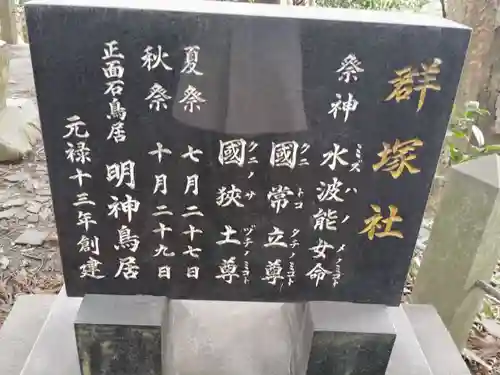 群塚社
祭神 水波能女命
ミズハノメノミコト
国常立尊
クニノトコタチノミコト
国狭土尊
クニノサヅチノミコト
夏祭 七月二十七日
秋祭 十月二十九日
正面石鳥居 明神鳥居
元禄十三年創建